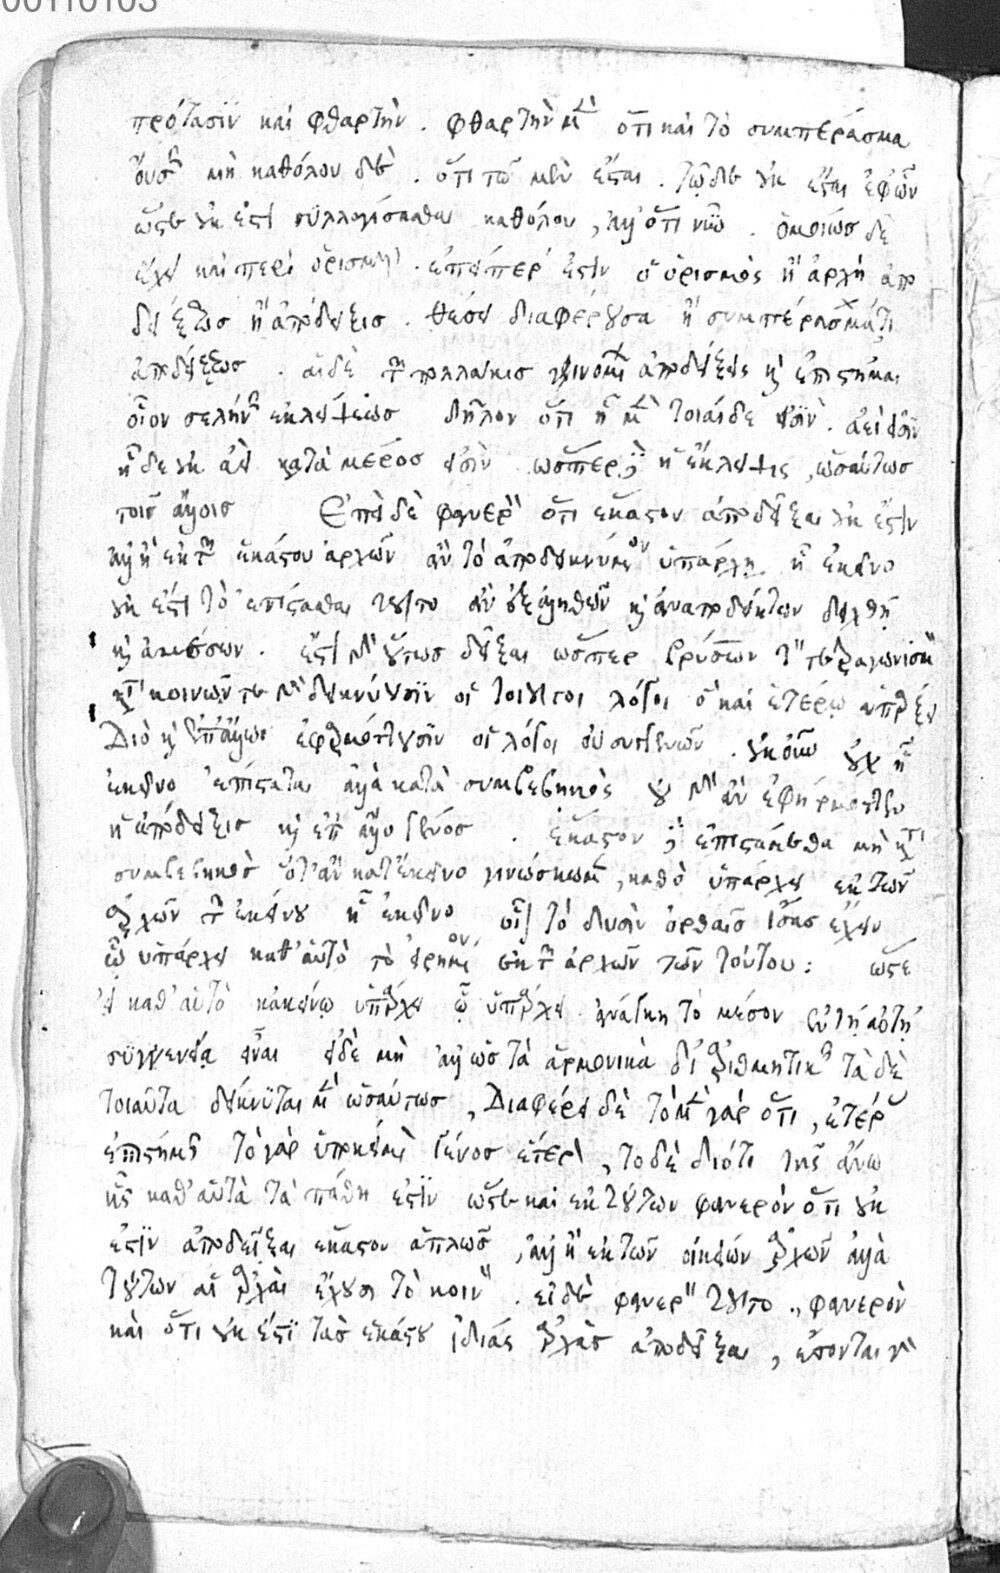 00110103
πρότασιν καὶ φθαρτὴν . φθαρτὴν μὲν ὅτι καὶ τὸ συμπέρασμα
οὔσης μὴ καθόλου δὲ . ὅτι τῷ μὲν ἔσται . τῷδε οὐκ ἔσται ἐφ' ὧν
ὥστε οὐκ ἔστι συλλογίσασθαι καθόλου , ἀλλ' ὅτι νῦν . ὁμοίως δὲ
ἔχει καὶ περὶ ὁρισμούς . ἐπείπερ ἐστὶν ὁ ὁρισμὸς ἢ ἀρχὴ ἀπο
δείξεως ἢ ἀπόδειξις . θέσει διαφέρουσα ἢ συμπέρασμά τι
ἀποδείξεως . αἱ δὲ τῶν πολλάκις γινομένων ἀποδείξεις καὶ ἐπιστῆμαι
οἷον σελήνης ἐκλείψεως δῆλον ὅτι ᾗ μὲν τοιαίδε εἰσὶν . ἀεὶ εἰσὶν
ᾗ δε οὐκ ἀεὶ κατὰ μέρος εἰσὶν . ὥσπερ δ' ἡ ἔκλειψις , ὡσαύτως
τοῖς ἄλλοις Ἐπεὶ δὲ φανερὸν ὅτι ἕκαστον ἀποδεῖξαι οὐκ ἔστιν
ἀλλ' ἢ ἐκ τῶν ἑκάστου ἀρχῶν ἂν τὸ ἀποδεικνύμενον ὑπάρχῃ ᾗ ἐκεῖνο
οὐκ ἔστι τὸ ἐπίστασθαι τοῦτο ἂν ἐξ ἀληθῶν καὶ ἀναποδείκτων δειχθῇ
καὶ ἀμέσων . ἔστι γὰρ οὕτως δεῖξαι ὥσπερ βρύσων τὸν τετραγωνισμὸν
κατὰ κοινῶν τε γὰρ δεικνύουσιν οἱ τοιοῦτοι λόγοι ὃ καὶ ἑτέρῳ ὑπάρξει
Διὸ καὶ ἐπ' ἄλλων ἐφαρμόττουσιν οἱ λόγοι οὐ συγγενῶν . οὐκοῦν οὐχ ᾗ
ἐκεῖνο ἐπίσταται ἀλλὰ κατὰ συμβεβηκὸς οὐ γὰρ ἂν ἐφήρμοττεν
ἡ ἀπόδειξις καὶ ἐπ' ἄλλο γένος . ἕκαστον δ' ἐπιστάμεθα μὴ κατὰ
συμβεβηκὸς ὅτ' ἂν κατ' ἐκεῖνο γινώσκωμεν , καθὸ ὑπάρχει ἐκ τῶν
ἀρχῶν τῶν ἐκείνου ᾗ ἐκεῖνο οἷον τὸ δυσὶν ὀρθαῖς ἴσας ἔχειν
ᾧ ὑπάρχει καθ' αὑτὸ τὸ εἰρημένον ἐκ τῶν ἀρχῶν τῶν τούτου : ὥστε
εἰ καθ' αὑτὸ κἀκείνῳ ὑπάρχει ᾧ ὑπάρχει ἀνάγκη τὸ μέσον ἐν τῇ αὐτῇ
συγγενείᾳ εἶναι εἰ δὲ μὴ ἀλλ' ὡς τὰ ἁρμονικὰ δι' ἀριθμητικῆς τὰ δὲ
τοιαῦτα δείκνυται μὲν ὡσαύτως , Διαφέρει δὲ τὸ μὲν γὰρ ὅτι , ἑτέρας
ἐπιστήμης τὸ γὰρ ὑποκείμενον γένος ἕτερον , τὸ δὲ διότι τῆς ἄνω
ἧς καθ' αὑτὰ τὰ πάθη ἐστὶν ὥστε καὶ ἐκ τούτων φανερὸν ὅτι οὐκ
ἔστιν ἀποδεῖξαι ἕκαστον ἁπλῶς , ἀλλ' ἢ ἐκ τῶν οἰκείων ἀρχῶν ἀλλὰ
τούτων αἱ ἀρχαὶ ἔχουσι τὸ κοινόν . εἰ δὲ φανερὸν τοῦτο , φανερὸν
καὶ ὅτι οὐκ ἔστι τὰς ἑκάστου ἰδίας ἀρχὰς ἀποδεῖξαι , ἔσονται γὰρ